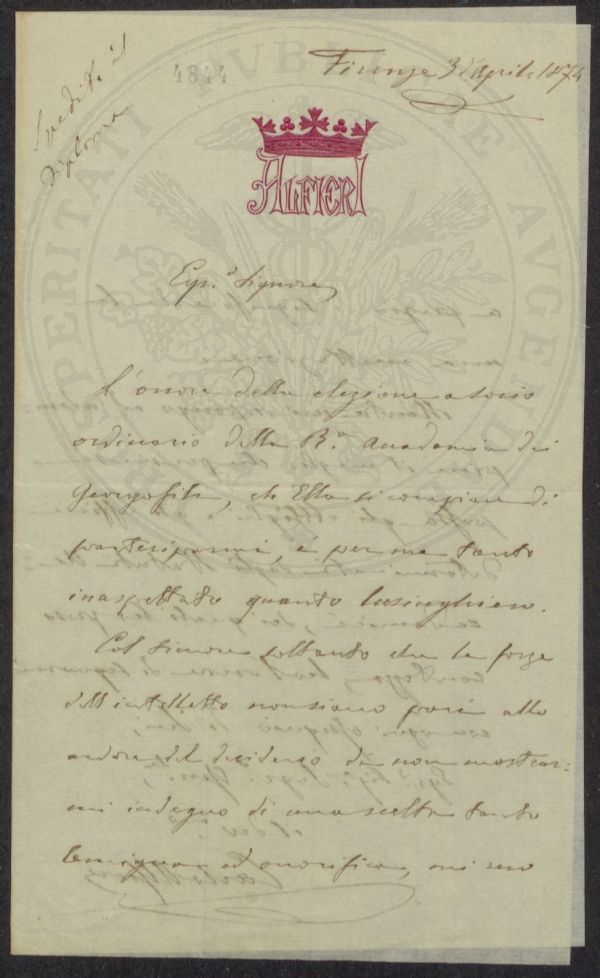 4844
Firenze 3 Aprile 1874
Spedito il
diploma
ALFIERI
PROSPERITATI PUBLICAE AUGENDAE
Egr.º Signore,
L'onore della elezione a socio
ordinario della R.ª Accademia dei
Georgofili, ch'Ella si compiace di
partecipar mi, è per me tanto
inaspettato quanto lusinghiero.
Col timore soltanto che le forze
dell'intelletto non siano pari allo
ardore del desiderio di non mostrar=
mi indegno di una scelta tanto
benigna ed onorifica, mi reco